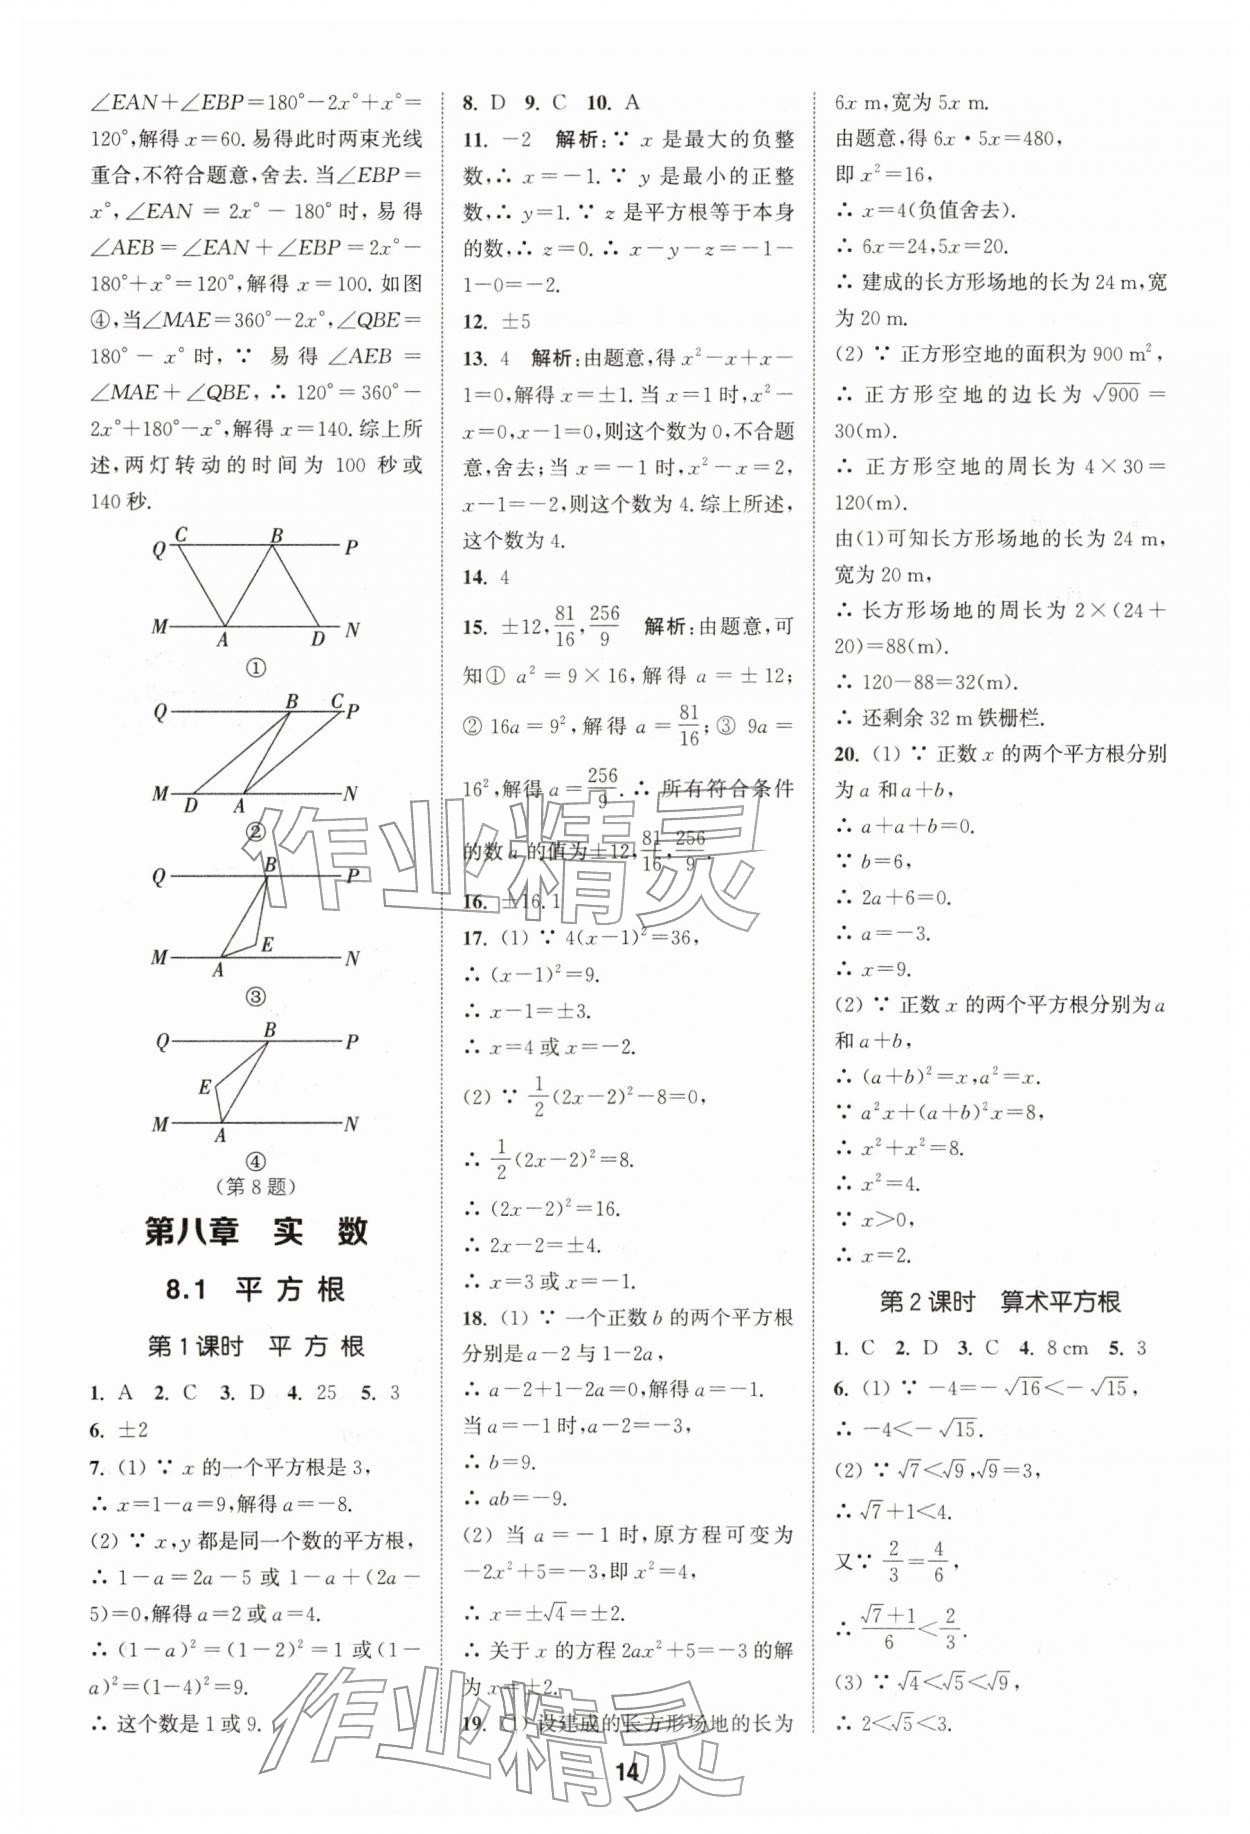 ∠EAN+∠EBP=180°-2x°+x°=
120°,解得 x=60. 易得此时两束光线
重合,不符合题意,舍去. 当∠EBP=
x°,∠EAN = 2x° - 180°时,易得
∠AEB=∠EAN+∠EBP=2x°-
180°+x°=120°,解得 x=100. 如图
④,当∠MAE=360°-2x°,∠QBE=
180° - x° 时, ∵ 易得 ∠AEB =
∠MAE+∠QBE, ∴ 120°=360°-
2x°+180°-x°,解得 x=140. 综上所
述,两灯转动的时间为 100 秒或
140 秒.
Q C B P
M A D N
①
Q B C P
M D A N
②
Q B P
M A E N
③
Q B P
E
M A N
④
(第 8 题)
第八章 实 数
8.1 平 方 根
第 1 课时 平 方 根
1. A 2. C 3. D 4. 25 5. 3
6. ±2
7. (1) ∵ x 的一个平方根是 3,
∴ x=1-a=9,解得 a=-8.
(2) ∵ x,y 都是同一个数的平方根,
∴ 1-a=2a-5 或 1-a+(2a-
5)=0,解得 a=2 或 a=4.
∴ (1-a)²=(1-2)²=1 或(1-
a)²=(1-4)²=9.
∴ 这个数是 1 或 9.
8. D 9. C 10. A
11. -2 解析:∵ x 是最大的负整
数,∴ x=-1. ∵ y 是最小的正整
数,∴ y=1. ∵ z 是平方根等于本身
的数,∴ z=0. ∴ x-y-z=-1-
1-0=-2.
12. ±5
13. 4 解析:由题意,得 x²-x+x-
1=0,解得 x=±1. 当 x=1 时,x²-
x=0,x-1=0,则这个数为 0,不合题
意,舍去;当 x=-1 时,x²-x=2,
x-1=-2,则这个数为 4. 综上所述,
这个数为 4.
14. 4
15. ±12, 81/16, 256/9 解析:由题意,可
知① a²=9×16,解得 a=±12;
② 16a=9²,解得 a=81/16;③ 9a=
16²,解得 a=256/9. ∴ 所有符合条件
的数 a 的值为±12, 81/16, 256/9.
16. ±16.1
17. (1) ∵ 4(x-1)²=36,
∴ (x-1)²=9.
∴ x-1=±3.
∴ x=4 或 x=-2.
(2) ∵ 1/2(2x-2)²-8=0,
∴ 1/2(2x-2)²=8.
∴ (2x-2)²=16.
∴ 2x-2=±4.
∴ x=3 或 x=-1.
18. (1) ∵ 一个正数 b 的两个平方根
分别是 a-2 与 1-2a,
∴ a-2+1-2a=0,解得 a=-1.
当 a=-1 时,a-2=-3,
∴ b=9.
∴ ab=-9.
(2) 当 a=-1 时,原方程可变为
-2x²+5=-3,即 x²=4,
∴ x=±√4=±2.
∴ 关于 x 的方程 2ax²+5=-3 的解
为 x=±2.
19. (1) 设建成的长方形场地的长为
6x m,宽为 5x m.
由题意,得 6x·5x=480,
即 x²=16,
∴ x=4(负值舍去).
∴ 6x=24,5x=20.
∴ 建成的长方形场地的长为 24 m,宽
为 20 m.
(2) ∵ 正方形空地的面积为 900 m²,
∴ 正方形空地的边长为 √900 =
30(m).
∴ 正方形空地的周长为 4×30=
120(m).
由(1)可知长方形场地的长为 24 m,
宽为 20 m,
∴ 长方形场地的周长为 2×(24+
20)=88(m).
∴ 120-88=32(m).
∴ 还剩余 32 m 铁栅栏.
20. (1) ∵ 正数 x 的两个平方根分别
为 a 和 a+b,
∴ a+a+b=0.
∵ b=6,
∴ 2a+6=0.
∴ a=-3.
∴ x=9.
(2) ∵ 正数 x 的两个平方根分别为 a
和 a+b,
∴ (a+b)²=x,a²=x.
∵ a²x+(a+b)²x=8,
∴ x²+x²=8.
∴ x²=4.
∵ x>0,
∴ x=2.
第 2 课时 算术平方根
1. C 2. D 3. C 4. 8 cm 5. 3
6. (1) ∵ -4=-√16<-√15,
∴ -4<-√15.
(2) ∵ √7<√9,√9=3,
∴ √7+1<4.
又∵ 2/3=4/6,
∴ (√7+1)/6<2/3.
(3) ∵ √4<√5<√9,
∴ 2<√5<3.
14
作业精灵
作业精灵